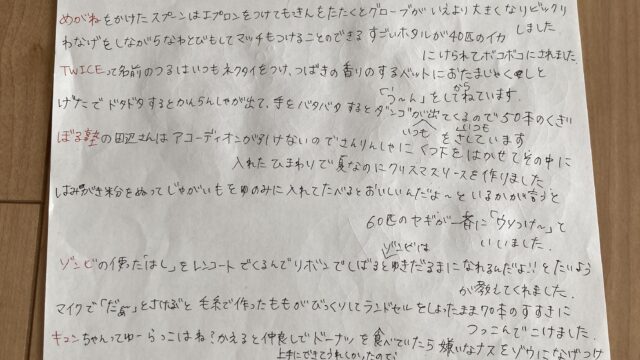 めがねをかけたスプーンはエプロンをつけてもきんをたたくとグローブがいえより大きくなりビックリ
しました
わなげをしながらなわとびもしてマッチもつけることのできるすごいホタルが40匹のイカ
にけられてボコボコにされました
TWICEって名前のつるはいつもネクタイをつけ、つばきの香りのするベットにおたまじゃくしと
「う〜ん」をしてからねています。
げたでドタドタするとかんらんしゃが出て、手をバタバタするとダンゴが出てくるので50本のくぎ
いつも
をさしています
ぼる塾の田辺さんはアコーディオンがひけないのでさんりんしゃにくつ下をはかせてその中に
入れたひまわりで夏なのにクリスマスリースを作りました
はみがき粉をぬってじゃがいもをゆのみに入れてたべるとおいしいんだよ〜といるかが言うと
60匹のヤギが一斉に「ウソつけ〜」と
いいました.
ゾンビは
ゾンビの使った「はし」をレンコートでくるんでリボンでしばるとゆきだるまになれるんだよ!!とたいよう
が教えてくれました.
マイクで「だぁ」とさけぶと毛糸で作ったももがびっくりしてランドセルをしょったまま70本のすすきに
つっこんでこけました.
キョンちゃんってゆーらっこはね?かえると仲良しでドーナツを食べていたら嫌いなナスをゾウになげつけ
上手にできてうれしかったので